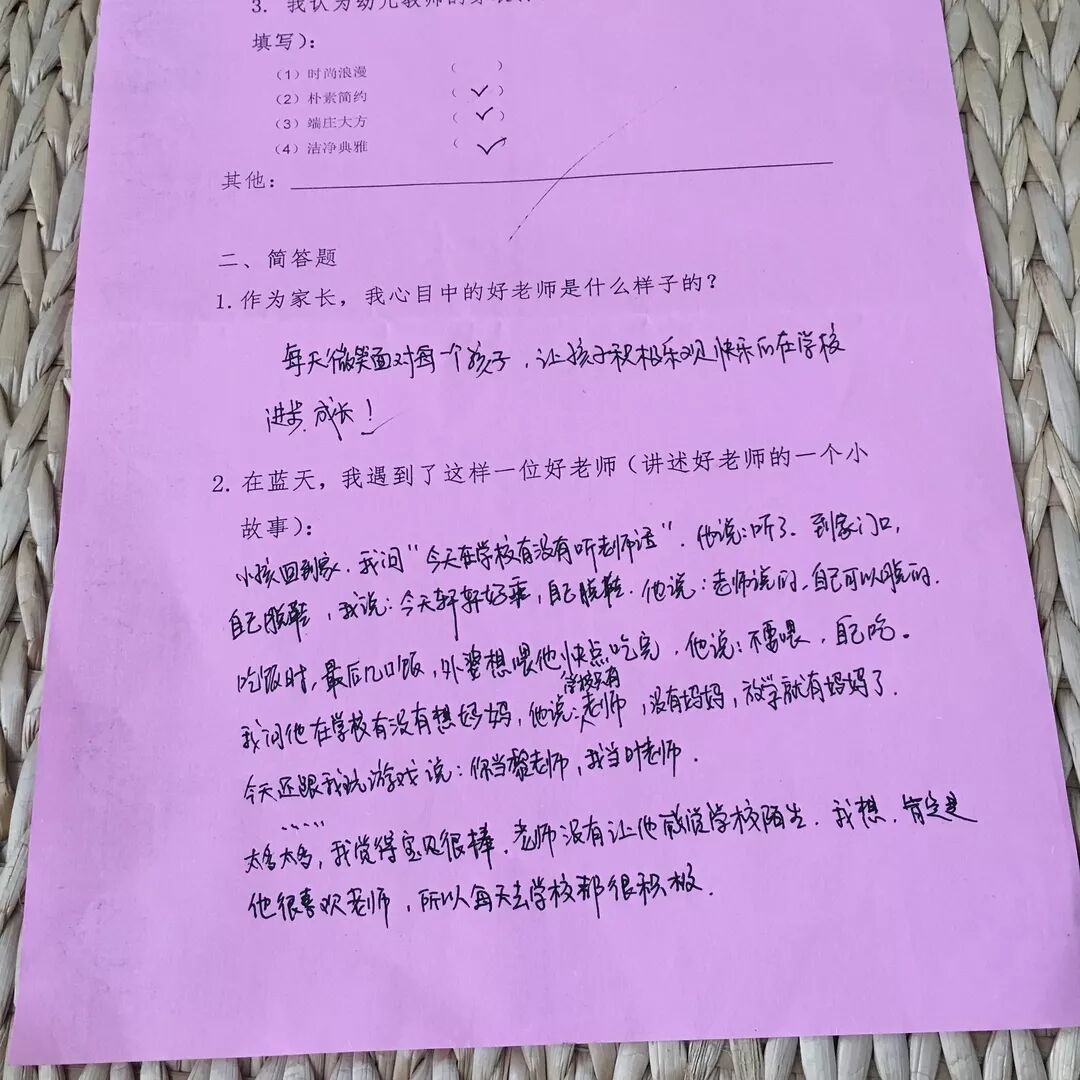 3. 我认为幼儿教师的穿
填写）：
（1）时尚浪漫 （ ）
（2）朴素简约 （ ✓ ）
（3）端庄大方 （ ✓ ）
（4）洁净典雅 （ ✓ ）
其他：
二、简答题
1. 作为家长，我心目中的好老师是什么样子的？
每天微笑面对每一个孩子，让孩子积极乐观快乐的在学校
进步，成长！
2. 在蓝天，我遇到了这样一位好老师（讲述好老师的一个小
故事）：
小孩回到家，我问“今天在学校有没有听老师话”，他说：听了．到家门口，
自己脱鞋，我说：今天轩轩好乖，自己脱鞋．他说：老师说的，自己可以脱的．
吃饭时，最后几口饭，外婆想喂他快点吃完，他说：不要喂，自己吃。
我问他在学校有没有想妈妈，他说：学校只有老师，没有妈妈，放学就有妈妈了．
今天还跟我玩游戏说：你当黎老师，我当叶老师．
太多太多，我觉得宝贝很棒．老师没有让他感觉学校陌生．我想，肯定是
他很喜欢老师，所以每天去学校都很积极．